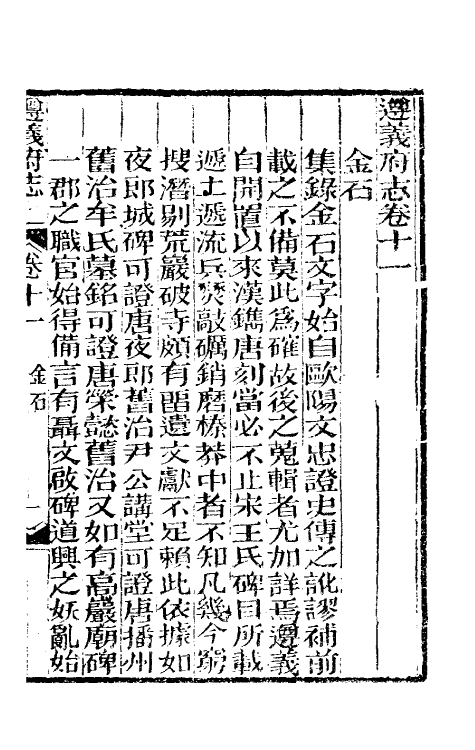 遵義府志卷十一
金石
集錄金石文字始自歐陽文忠證史傳之訛謬補前
載之不備莫此為確故後之蒐輯者尤加詳焉遵義
自開置以來漢鐫唐刻當必不止宋王氏碑目所載
遞土遞流兵燹敲礪銷磨榛莽中者不知凡幾今窮
搜潛剔荒巖破寺頗有畱遺文獻不足賴此依據如
夜郎城碑可證唐夜郎舊治尹公講堂可證唐播州
舊治牟氏墓銘可證唐榮懿舊治又如有高巖廟碑
一郡之職官始得備言有聶文啟碑道興之妖亂始
遵義府志
卷十一
金石
一